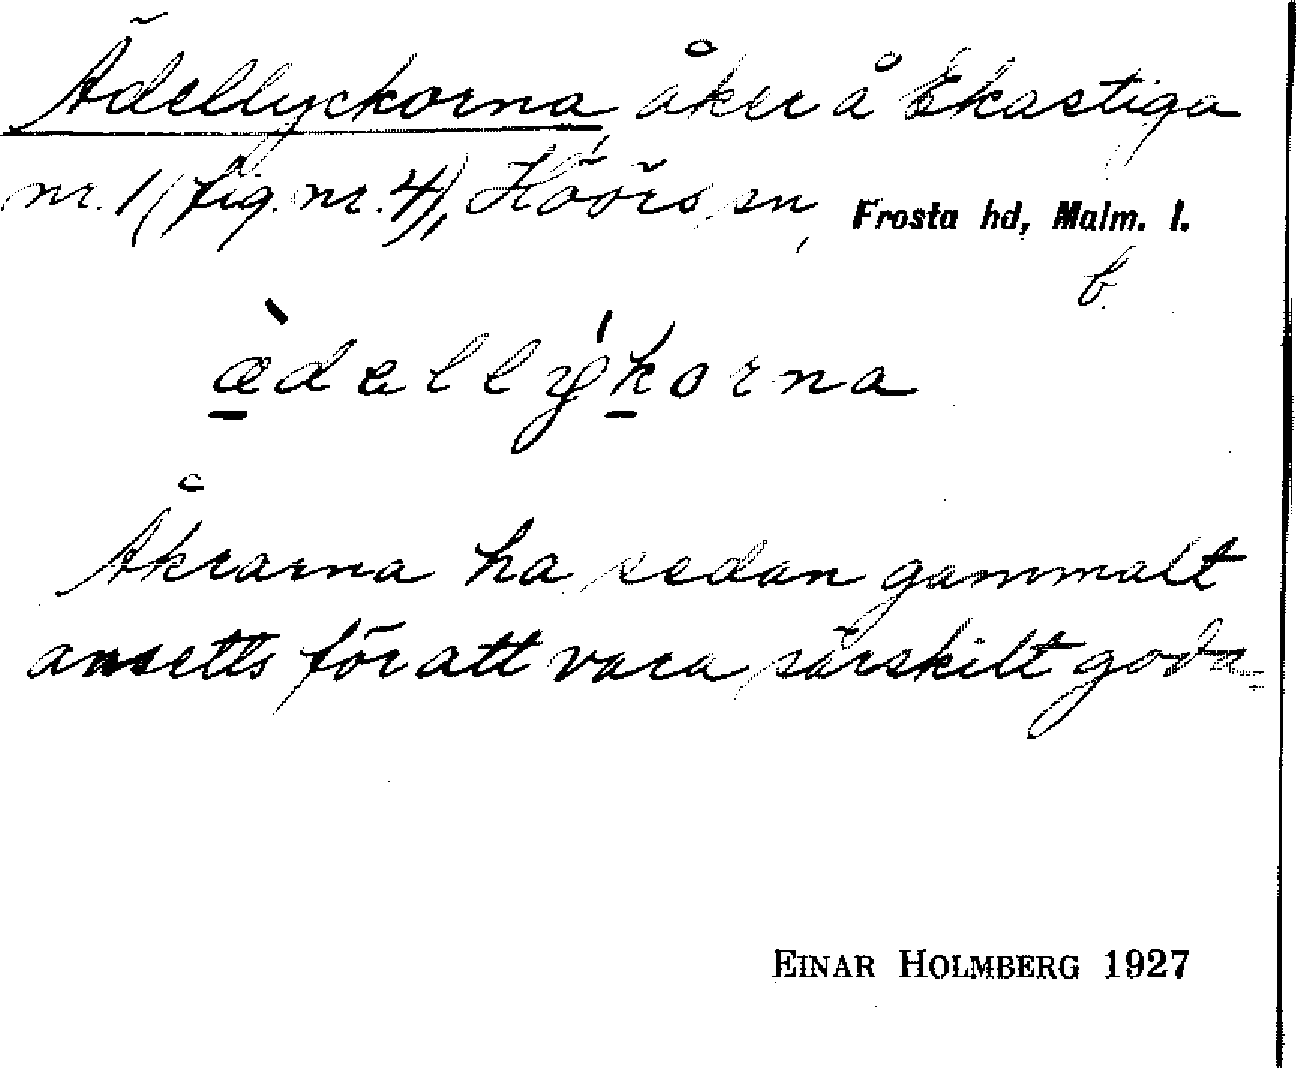 Ädellyckorna åker å Ekastiga
nr. 1 (fig. nr. 4), Höörs sn, Frosta hd, Malm. l.
b.
æ̀dællýkorna
Åkrarna ha sedan gammalt
ansetts för att vara särskilt goda
EINAR HOLMBERG 1927